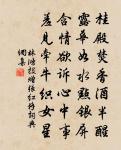 桂殿焚香酒半醒
露華如水點銀屏
含情欲訴心中事
羞見牽牛織女星
林鴻投贈張紅橋詞典
網集